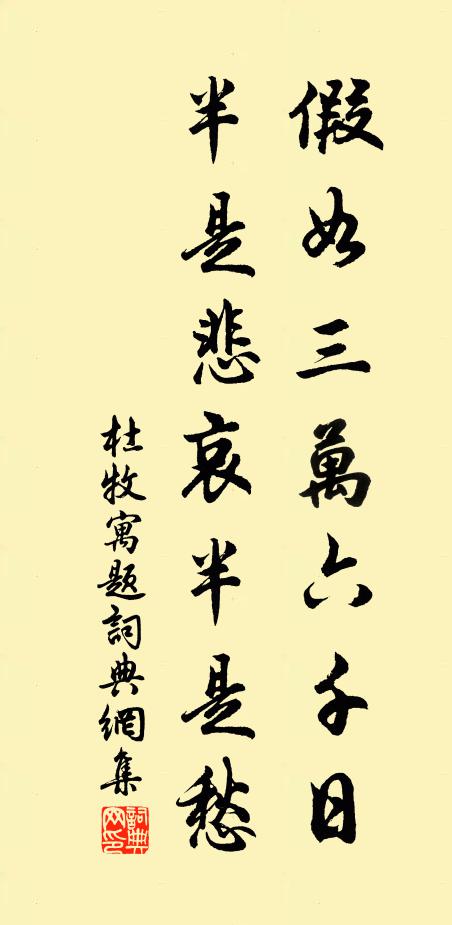 假如三萬六千日
半是悲哀半是愁
杜牧寓題詞典網集
詞典網印